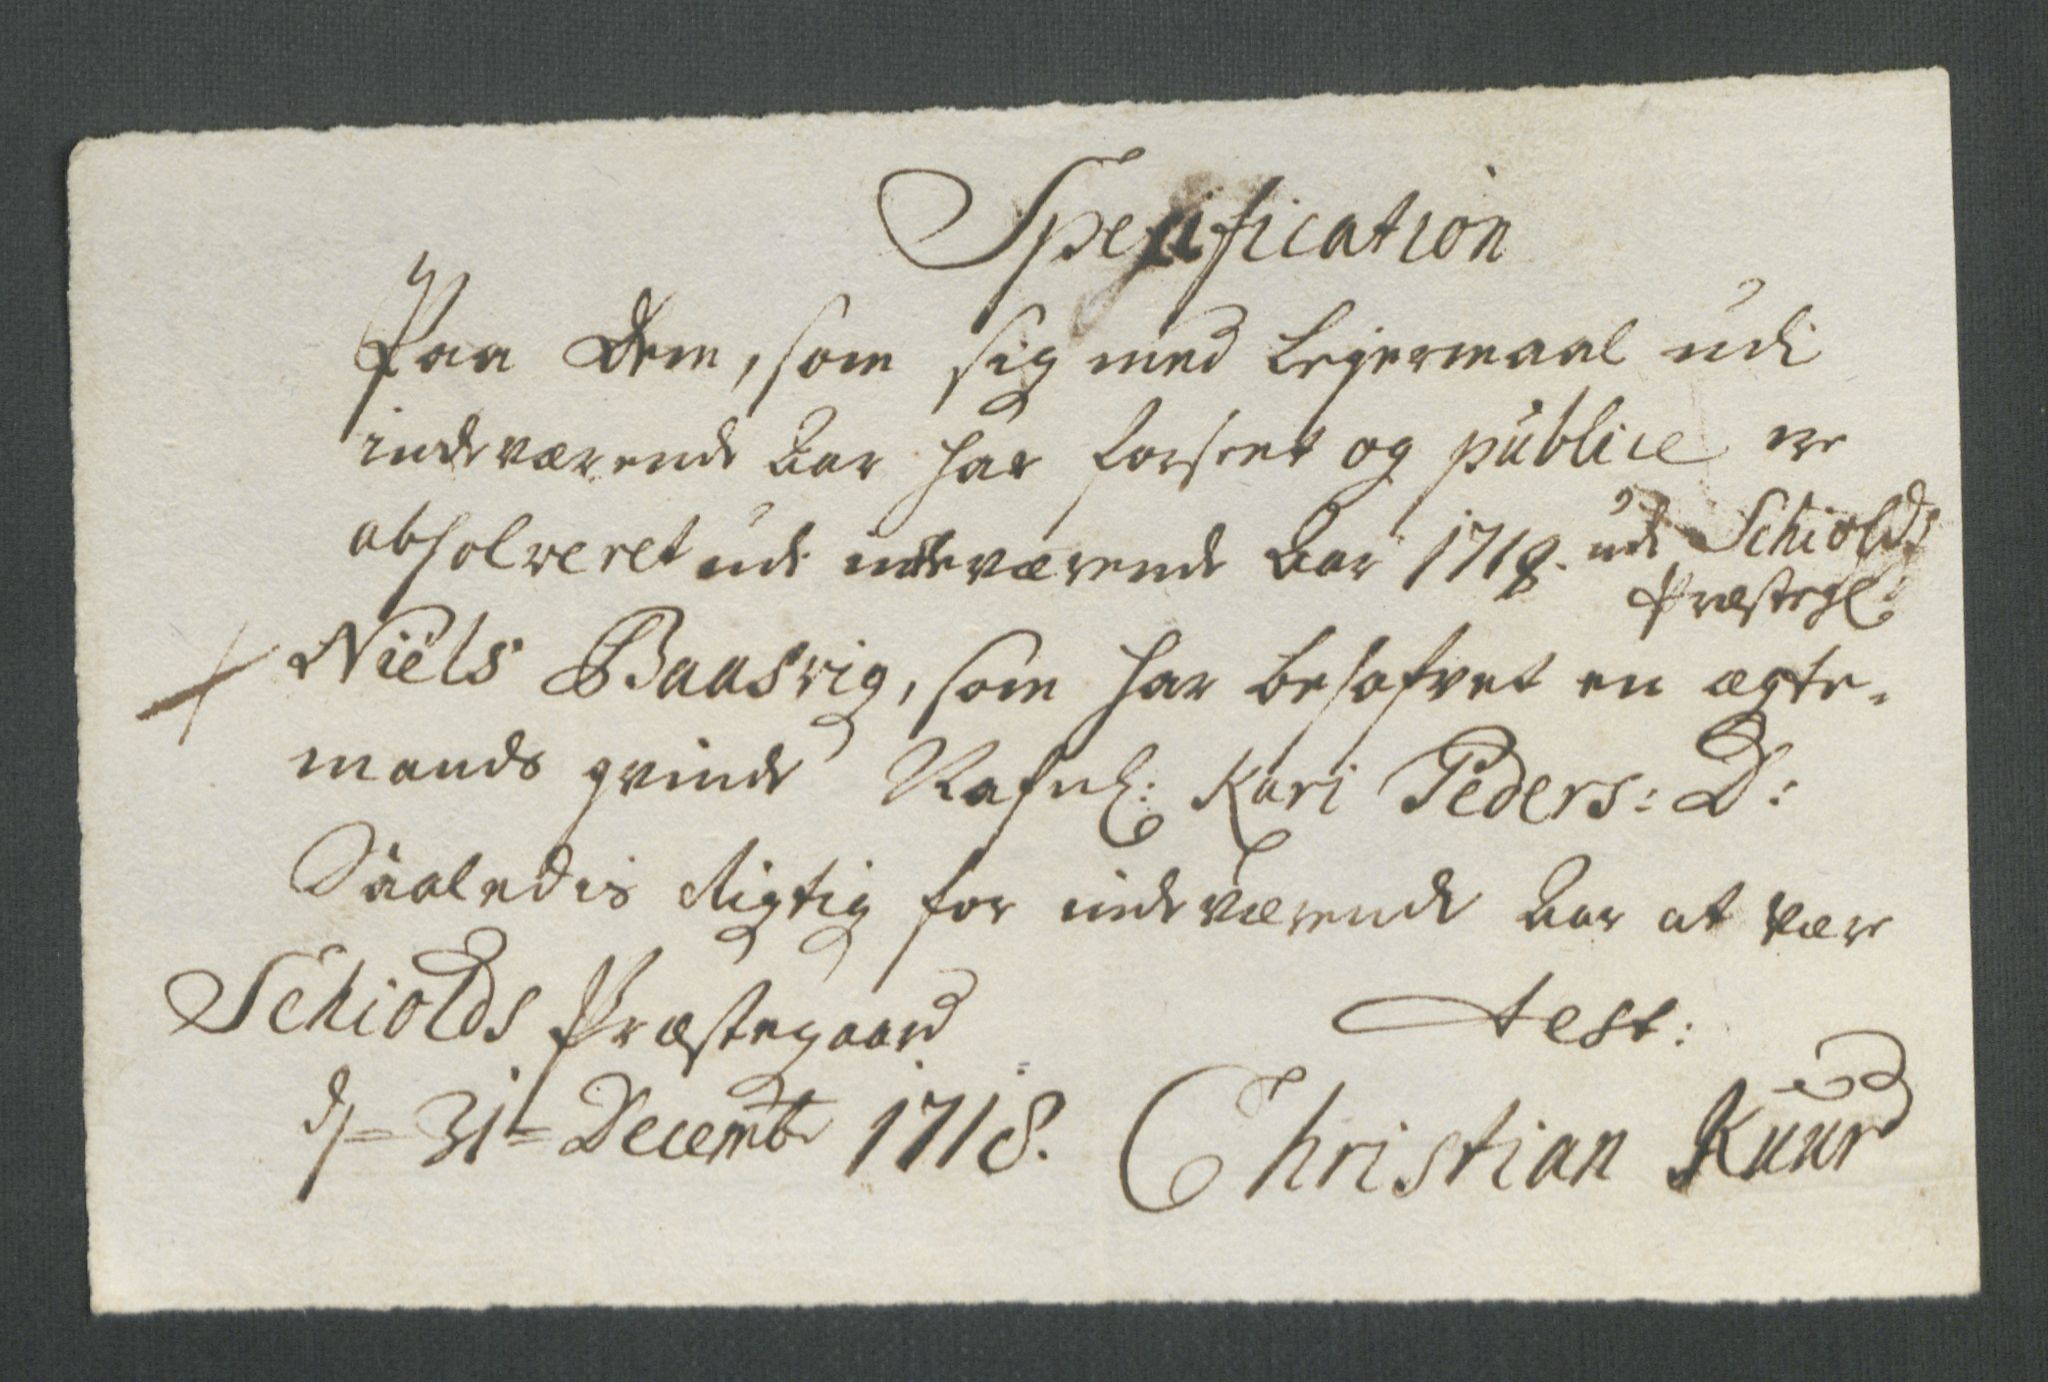 Specification
Paa dem, som sig med Lejermaal udi
indeværende Aar har forseet og publice ere
absolveret udi indeværende Aar 1718. udi Schiolds
Præstegl:
Niels Baasvig, som har besofvet en ægte-
mands qvinde Nafnl: Kari Peders: D:
Saaledis Rigtig for indeværende Aar at være
Schiolds Præstegaard test:
d 31 Decemb 1718. Christian Kuur